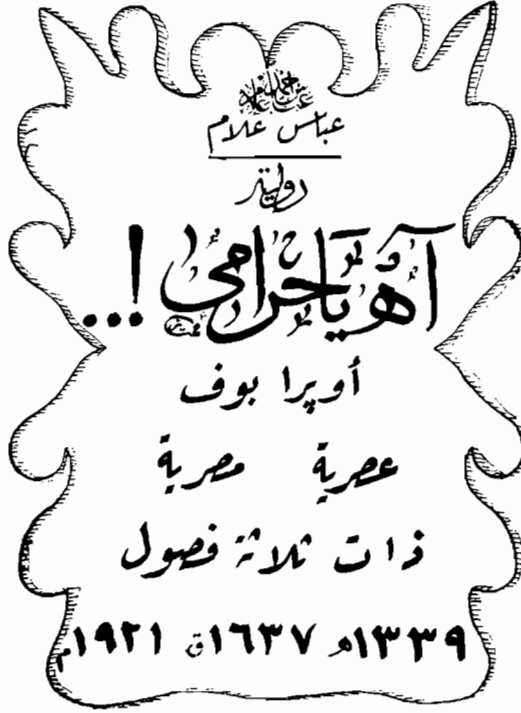 عباس علام
رواية
آه يا حرامى!...
أوپرا بوف
عصرية مصرية
ذات ثلاثة فصول
١٣٣٩ه ١٦٣٧ق ١٩٢١م